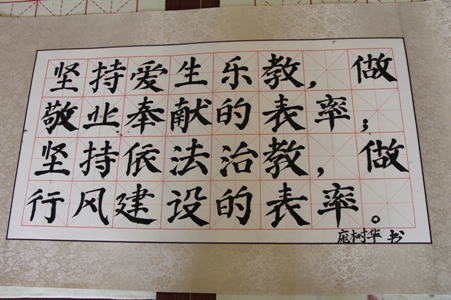 坚持爱生乐教，做
敬业奉献的表率；
坚持依法治教，做
行风建设的表率。
庞树华 书